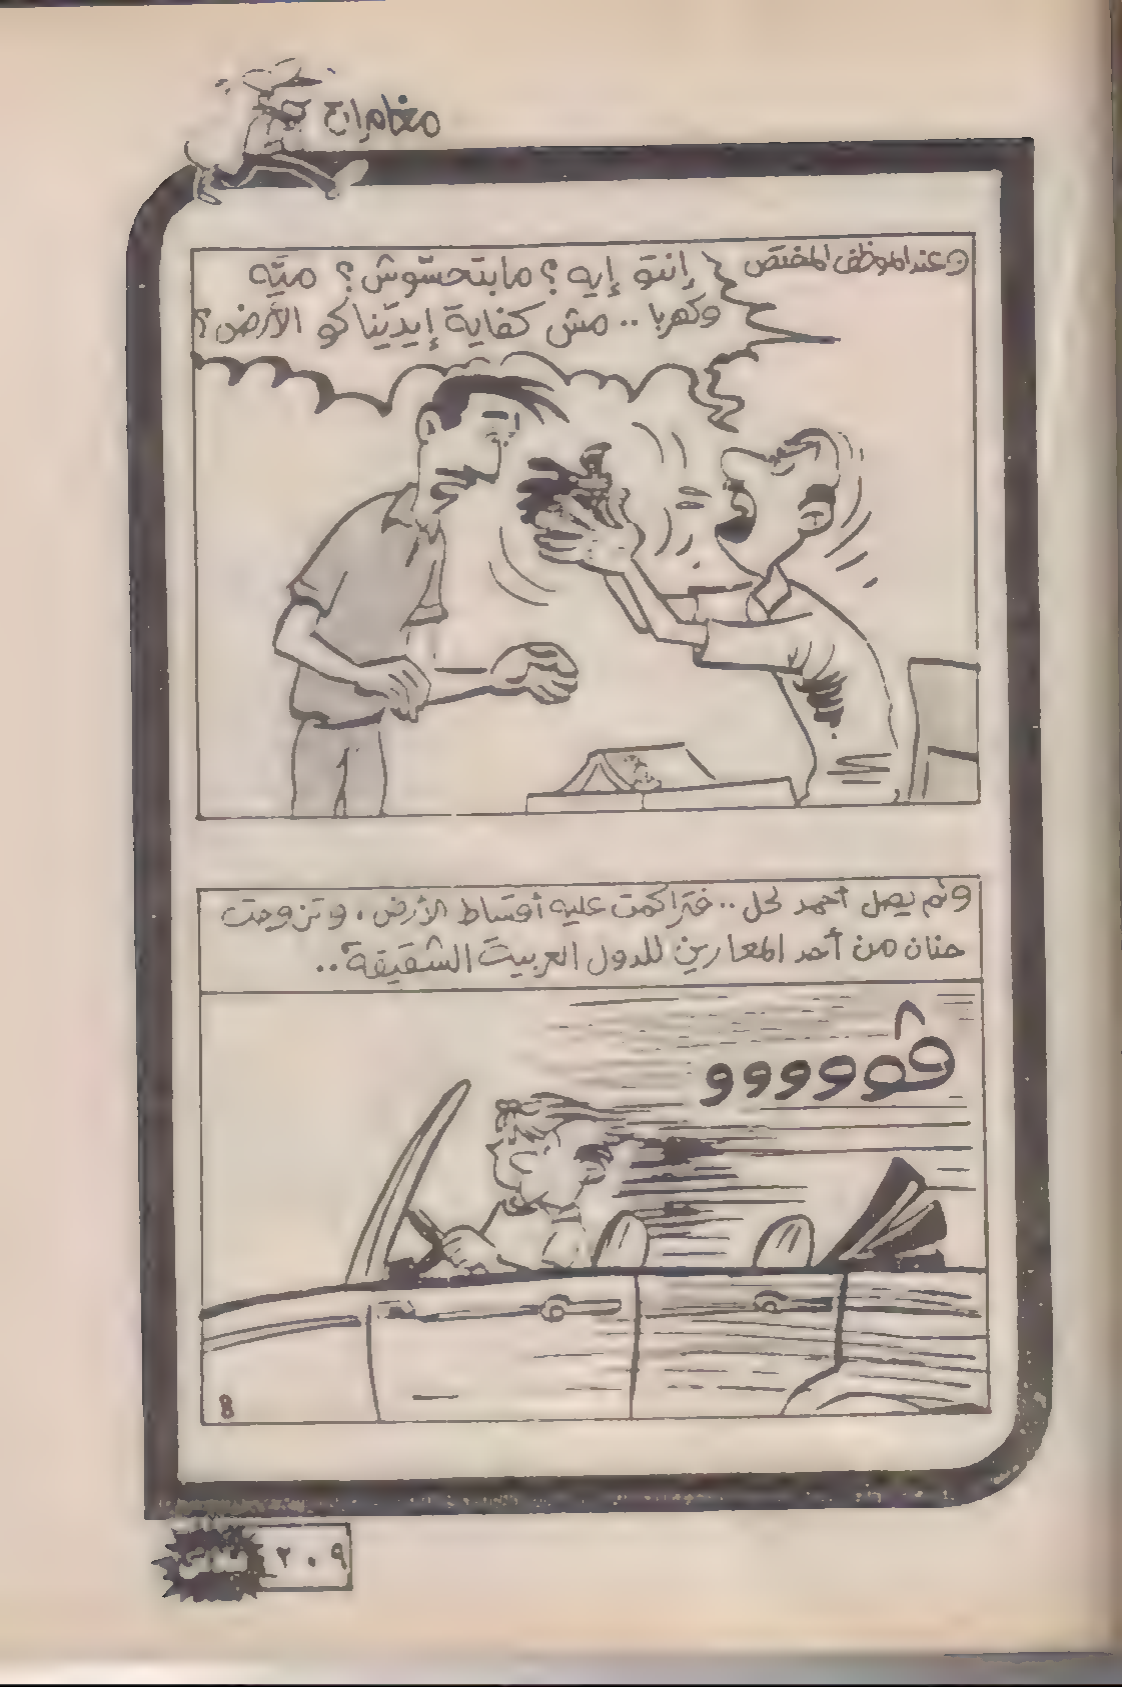 مغامرات
وعند الموظف المختص
إنتو إيه ؟ مابتحسّوش ؟ ميّه
وكهربا .. مش كفاية إيدّيناكو الأرض ؟
ولم يصل أحمد لحل .. فتراكمت عليه أقساط الأرض ، وتزوجت
حنان من أحد المعارين للدول العربية الشقيقة ..
ڤووووو
8
٢٠٩